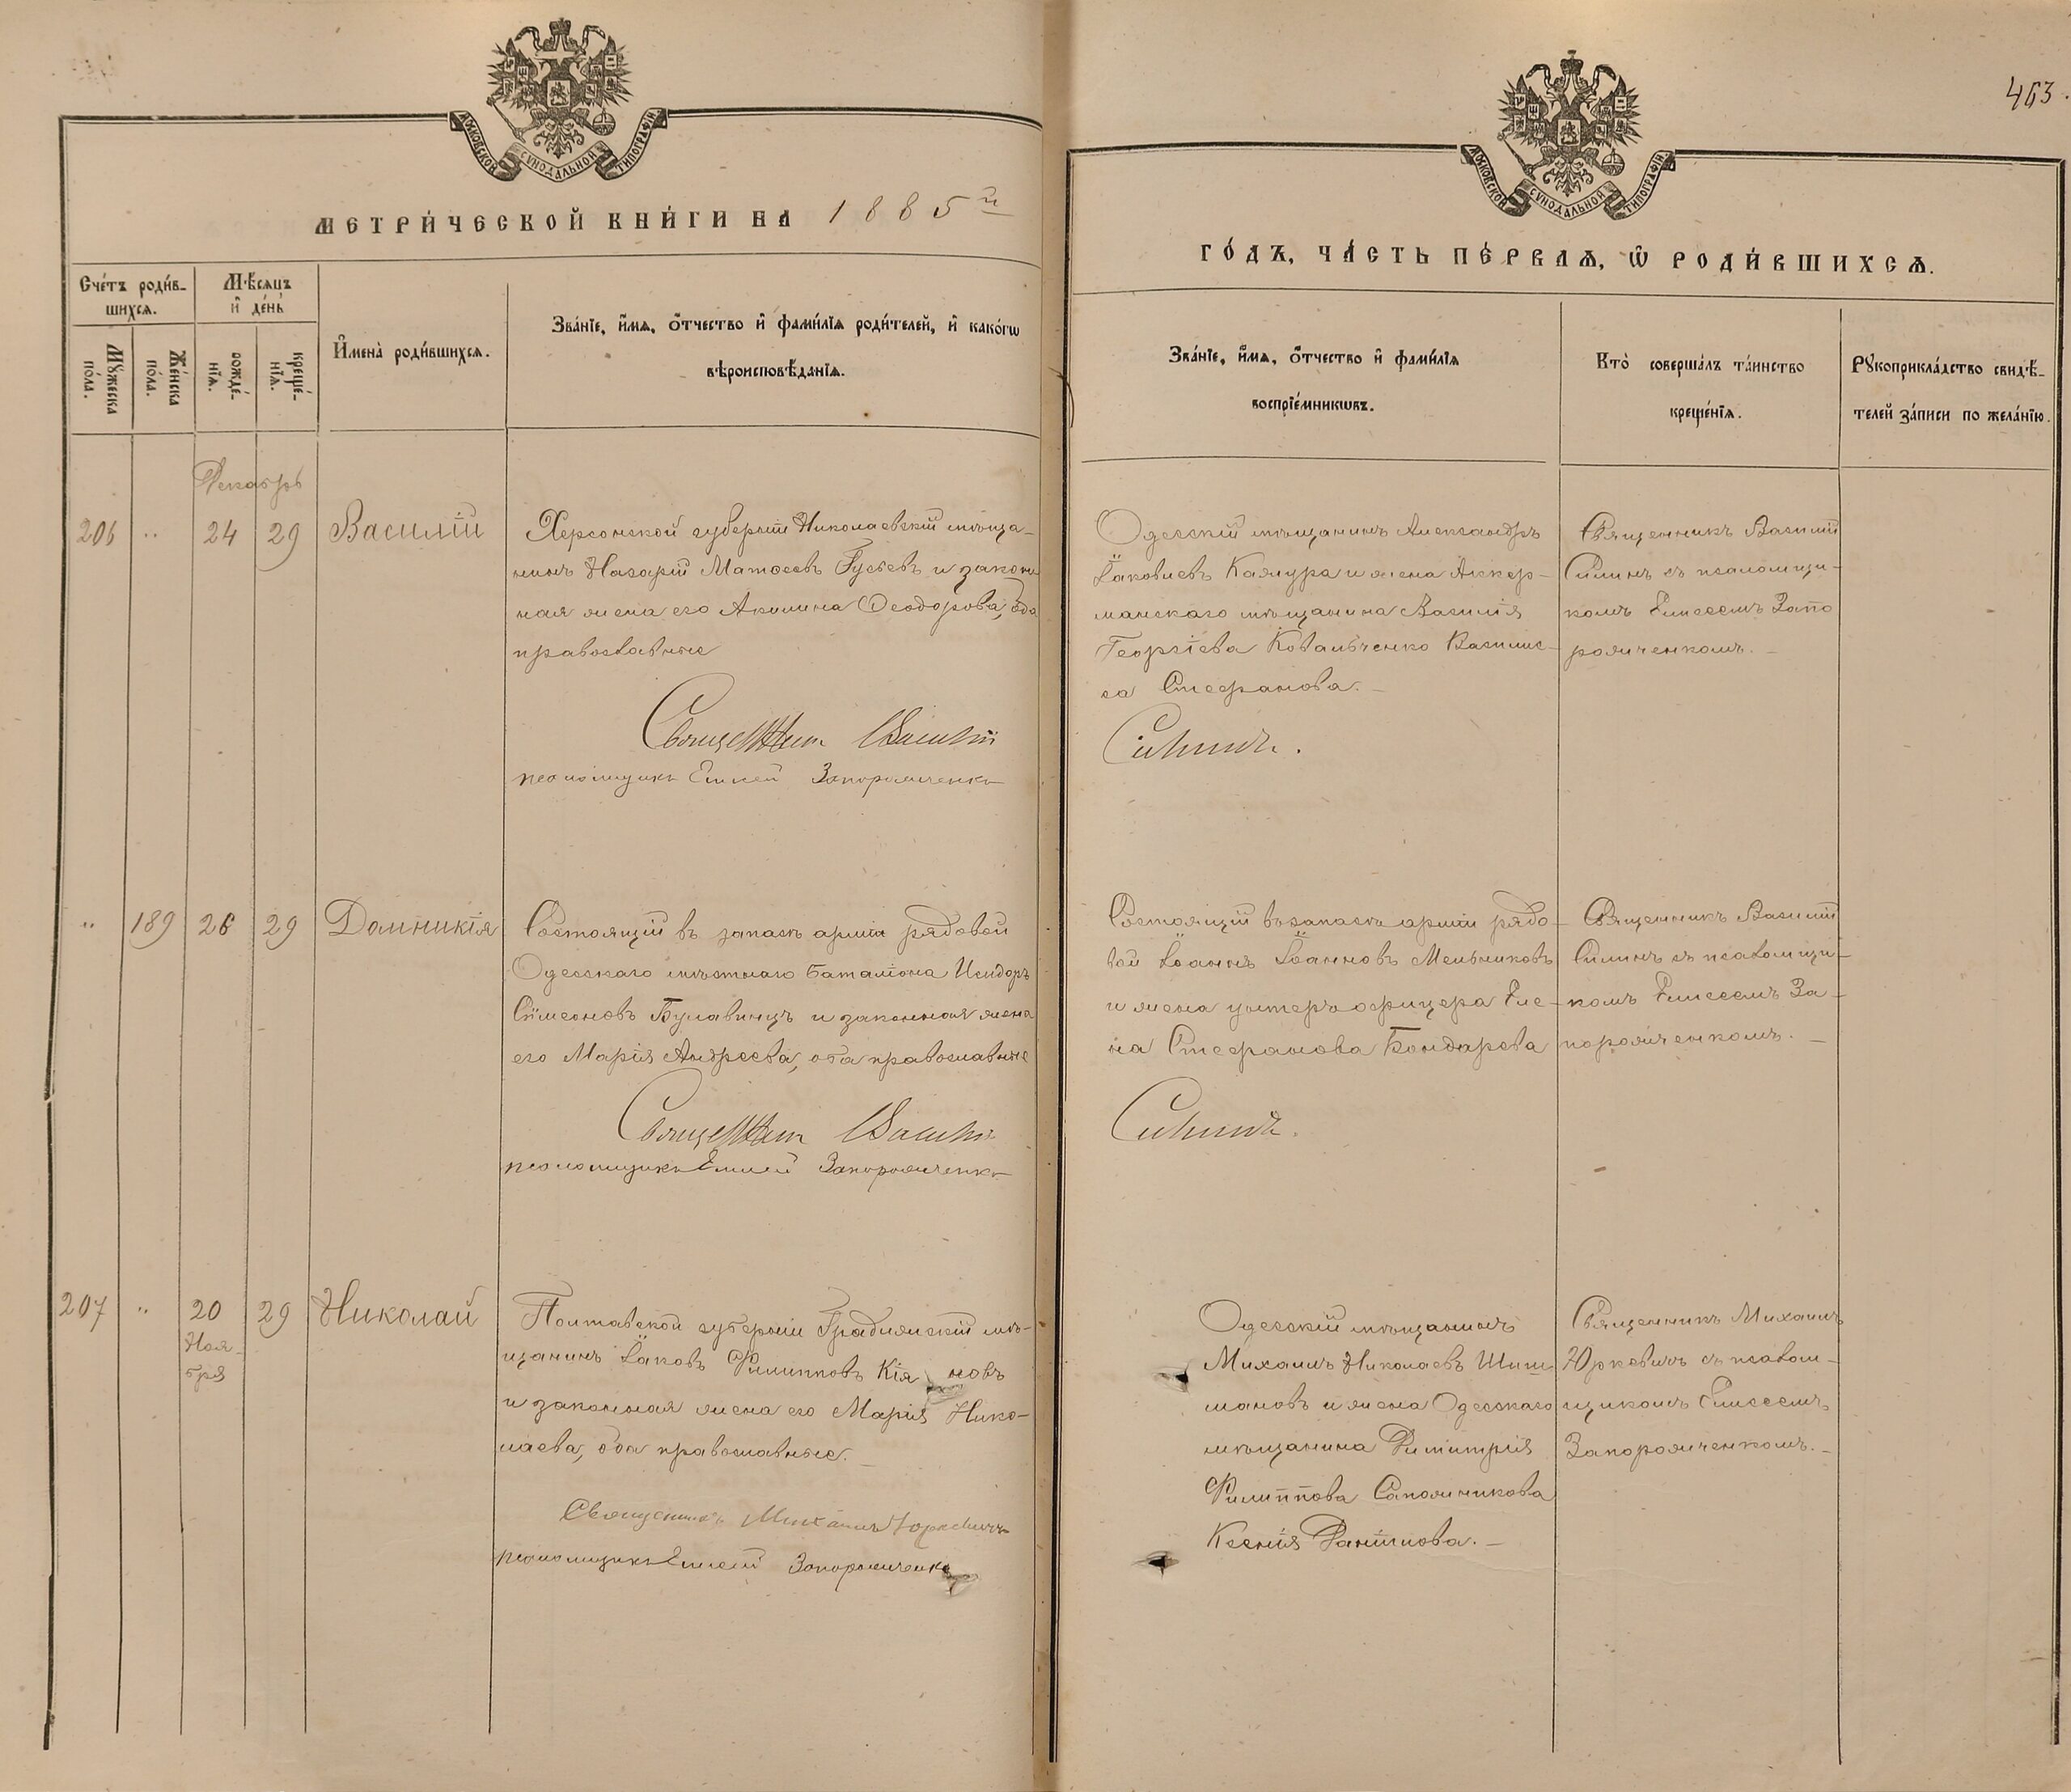 463.
МОСКОВСКОЙ СѴНОДАЛЬНОЙ ТИПОГРАФІИ
МЕТРИ́ЧЕСКОЙ КНИ́ГИ НА 1885й
МОСКОВСКОЙ СѴНОДАЛЬНОЙ ТИПОГРАФІИ
ГО́ДЪ, ЧА́СТЬ ПЕ́РВАѦ, Ѿ РОДИ́ВШИХСѦ.
Сче́тъ роди́в-
шихсѧ.
Мꙋжеска
по́ла.
Же́нска
по́ла.
Мѣ́сѧцъ
и҆ де́нь
рожде́-
нїѧ.
креще́-
нїѧ.
И҆мена̀ роди́вшихсѧ.
Зва́нїе, и҆́мѧ, ѻ҆́тчество и҆ фамилїѧ роди́телей, и҆ како́гѡ
вѣроисповѣ́данїѧ.
Зва́нїе, и҆́мѧ, ѻ҆́тчество и҆ фами́лїѧ
воспрїе́мникѡвъ.
Кто̀ соверша́лъ та́инство
креще́нїѧ.
Рꙋкоприкла́дство свидѣ́-
телей за́писи по жела́нїю.
Декабрь
206 .. 24 29 Василій
Херсонской губерніи Николаевскій мѣща-
нинъ Назарій Матѳеевъ Гусевъ и закон
ная жена его Акилина Ѳеодорова, оба
православные
Священникъ Василій
псаломщикъ Елисей Запорожченко
Одесскій мѣщанинъ Александръ
Іаковлевъ Качура и жена Аккер-
манскаго мѣщанина Василія
Георгіева Ковальченко Васили-
са Стефанова.-
Силинъ.
Священникъ Василій
Силинъ съ псаломщи-
комъ Елисеемъ Запо
рожченкомъ.-
.. 189 26 29 Домникія
Состоящій въ запасѣ арміи рядовой
Одесскаго мѣстнаго баталіона Исидоръ
Сѵмеоновъ Булавинцъ и законная жена
его Марія Андреева, оба православные
Священникъ Василій
псаломщикъ Елисей Запорожченко
Состоящій въ запасѣ арміи рядо-
вой Іоаннъ Іоанновъ Мельниковъ
и жена унтеръ офицера Еле-
на Стефанова Бондарева
Силинъ.
Священникъ Василій
Силинъ съ псаломщи-
комъ Елисеемъ За-
порожченкомъ.-
207 .. 20 29 Николай
Ноя-
бря
Полтавской губерніи Градижскій мѣ-
щанинъ Іаковъ Филипповъ Кія новъ
и законная жена его Марія Нико-
лаева, оба православные.-
Священникъ Михаилъ Юркевичъ
псаломщикъ Елисей Запорожченко
Одесскій мѣщанинъ
Михаилъ Николаевъ Шиш-
мановъ и жена Одесскаго
мѣщанина Димитрія
Филиппова Сапожникова
Ксенія Даніилова.-
Священникъ Михаилъ
Юркевичъ съ псалом-
щикомъ Елисеемъ
Запорожченкомъ.-